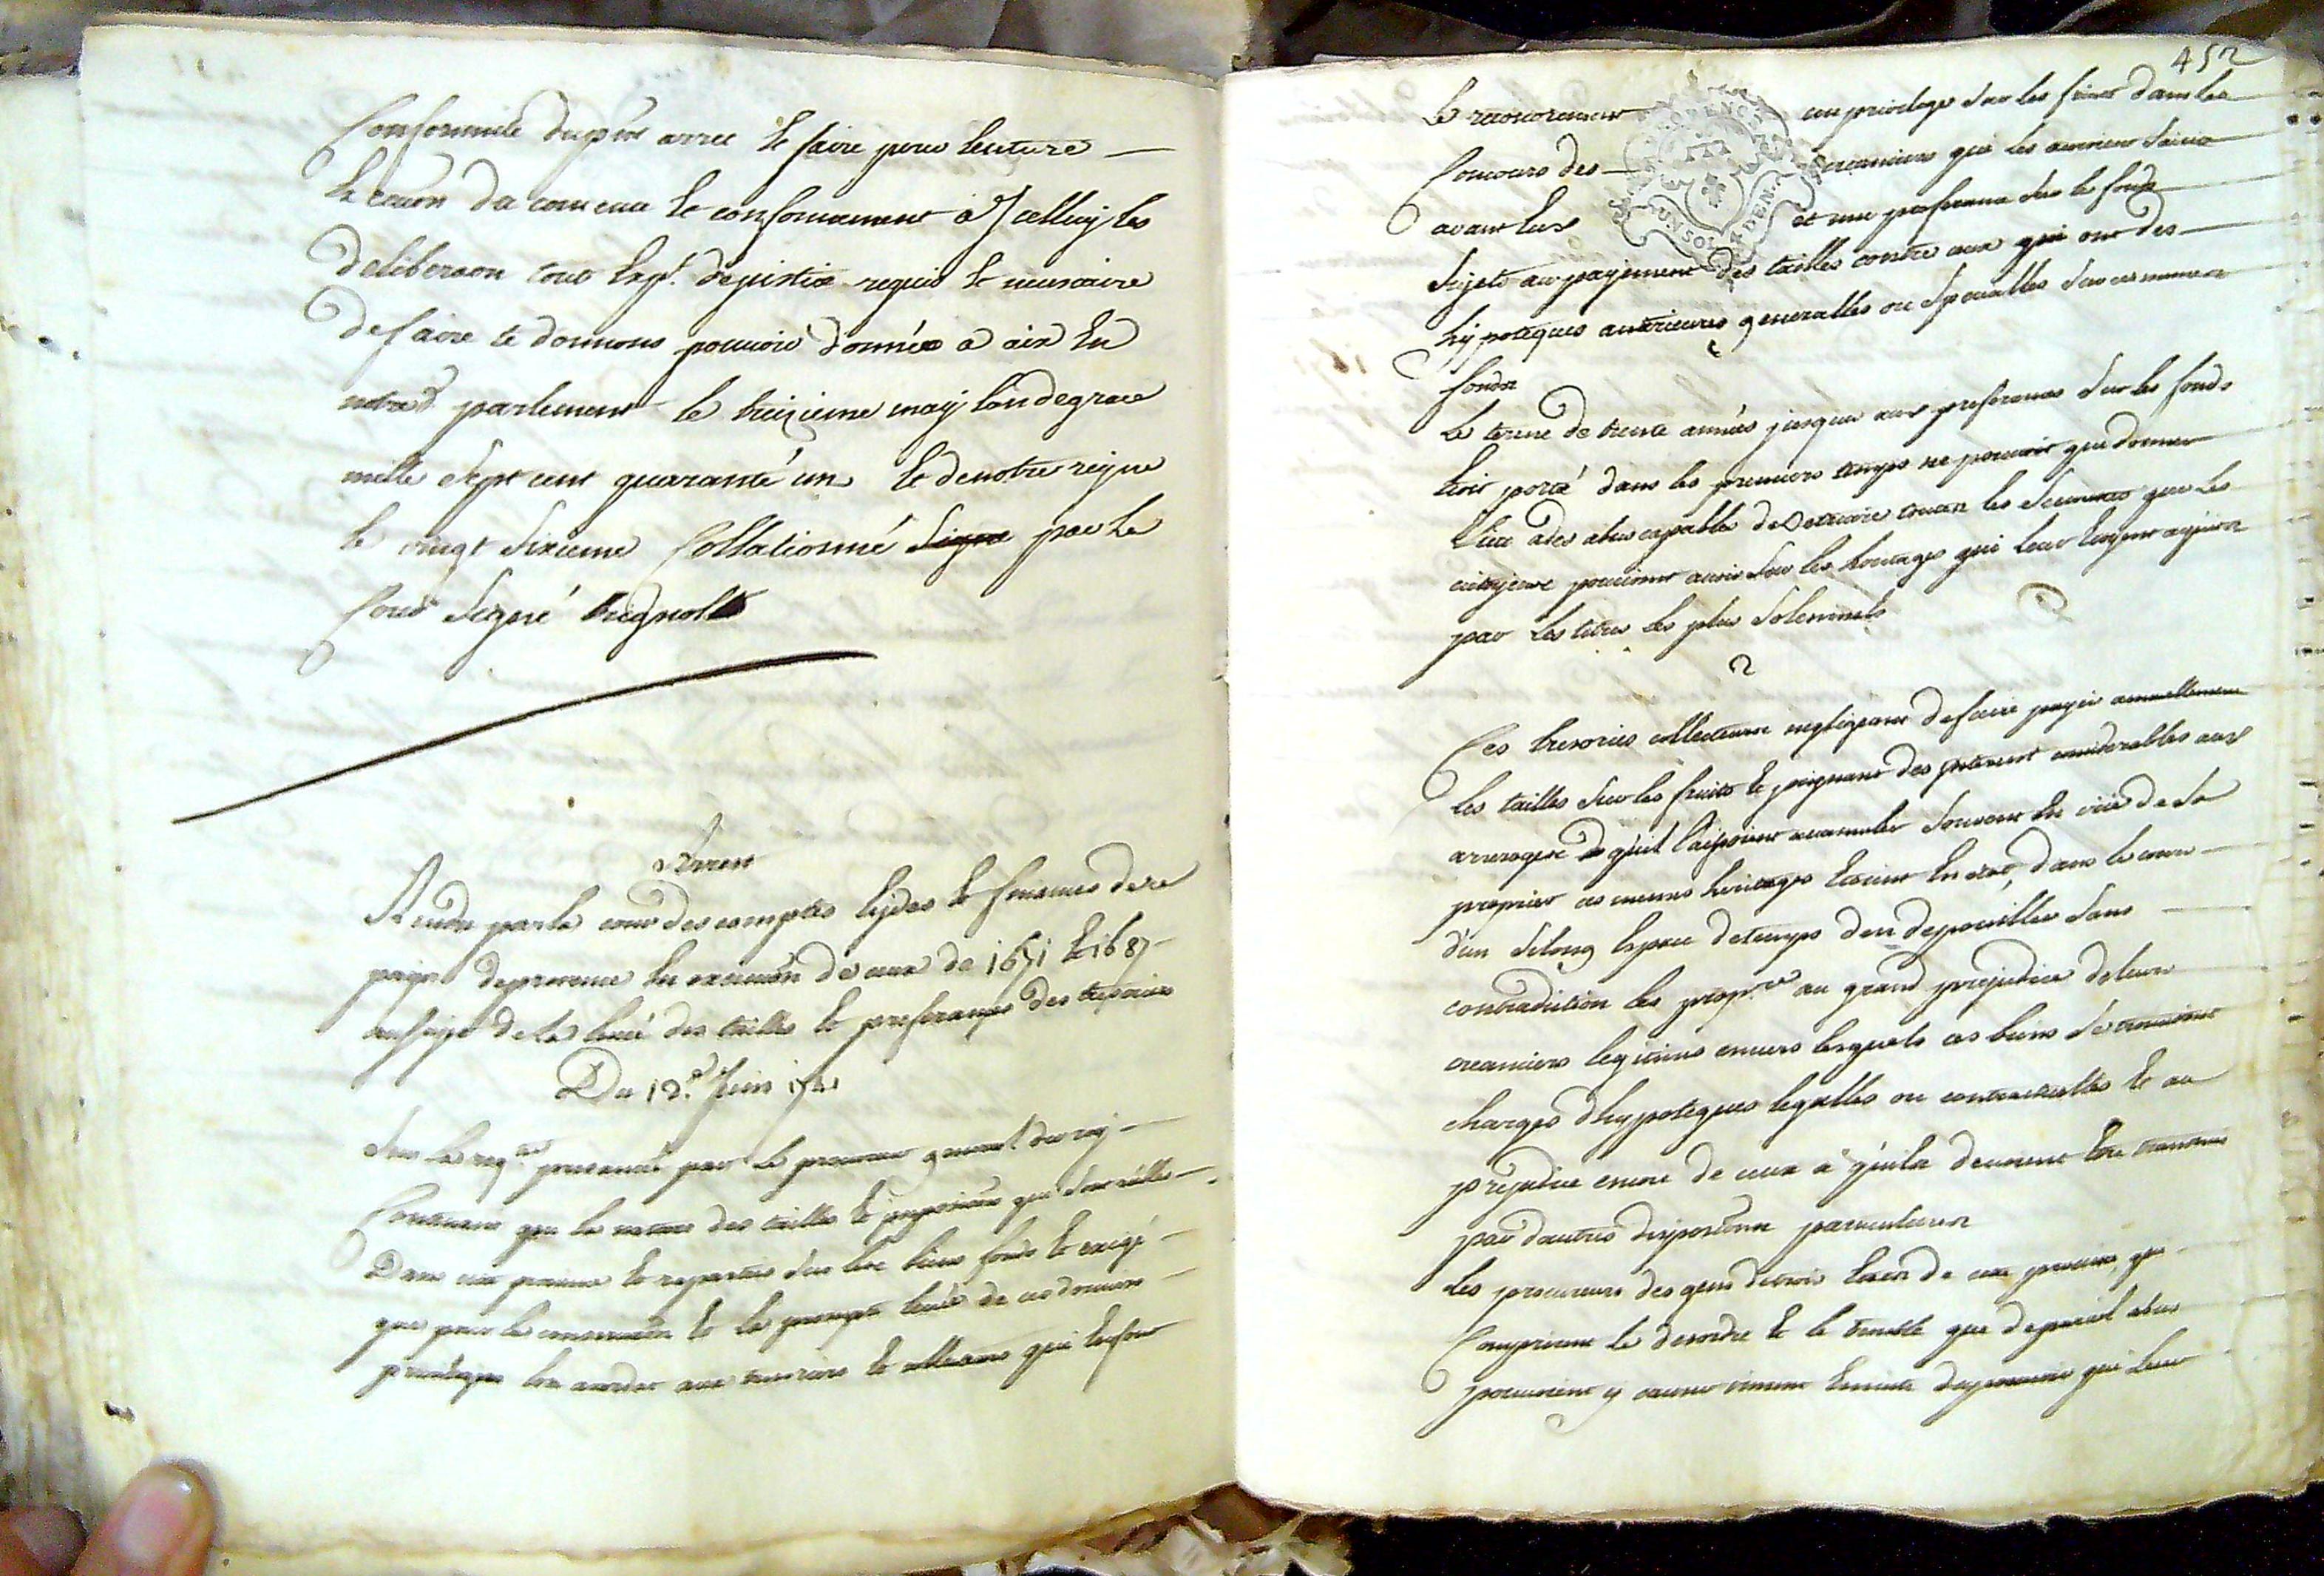 Conformité du pnt arret et faire pour lenture
et couon du contenu et conformement a Jcelluy les
deliberaon tout expt. de justice requis et necessaire
de faire te donnons pouvoir donnée a aix En
notred. parlement le treizieme may l'an de grace
mille Sept cent quarante un et de notre reigne
le vingt Sixieme Collationné Signe par le
Cons Signé Regnolt
Arrest
Rendu par la cour des comptes aydes et finances de ce
pays de provence En execuion de ceux de 1671 et 1687
au sujet de la levée des tailles et preferances des tresoriers
Du 12e. Juin 1741
Sur la reqte. presentée par le procureur general du roy
Contenant que la nature des tailles et imposions qui Sont réelles
Dans cette province et reparties Sur les biens fonds et exigé
que pour la conservaon et la prompte levée de ces deniers
privilegies lon accordat aux tresoriers et collecteurs qui En font
452
le recouvrement un privilege Sur les fruits dans le
Concours des creanciers qui les auroient Saisis
avant Eux et une preferance Sur le fonds
Sujets au payement des tailles contre ceux qui ont des
hypoteques anterieures generalles ou Specialles Sur ces memes
fonds
le terme de trente années jusques aux preferances Sur les fonds
Etoit porté dans les premiers temps ne pouvoit que donner
lieu a des abus capable de Detruire toutes les Seuretés que les
citoyens pouvoient avoir Sur les heritages qui leur Etoient aquis
par Les titres les plus Solemnels
Ces tresoriers collecteurs negligeant de faire payer annuellement
les tailles Sur les fruits et joignant des Jnterest considerables aux
arrerages qu'il laissoient accumuler Souvent En viie de Sa
proprier ces memes heritages Etoient En etat, dans le cours
d'un Silong Espace de temps d'en depouiller Sans
contradiction les propres au grand prejudice de leurs
creanciers legitimes envers lesquels ces biens Se trouvoient
charges d'hypoteques legalles ou contractuelles et au
prejudice encore de ceux a qu'ils devoient Etre transmis
par dautres disposions particulieres
les procureurs des gens des trois Etats de cette province, qui
Comprirent le desordre et le trouble que de pareil abus
pouvoient y causer